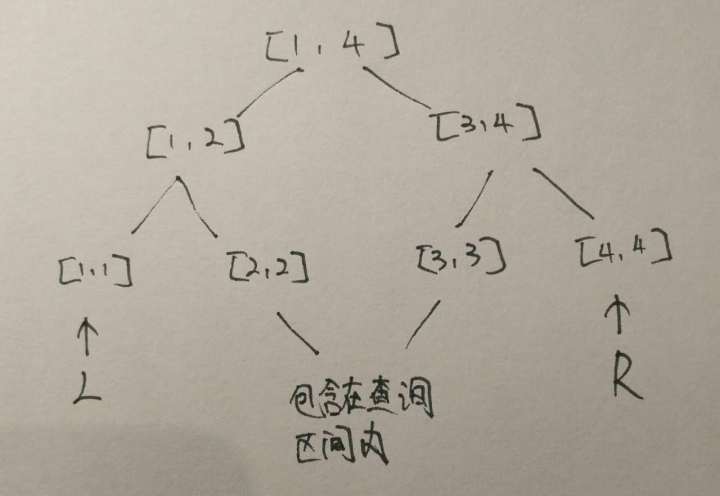 [1,4]
[1,2] [3,4]
[1,1] [2,2] [3,3] [4,4]
L R
包含在查询
区间内